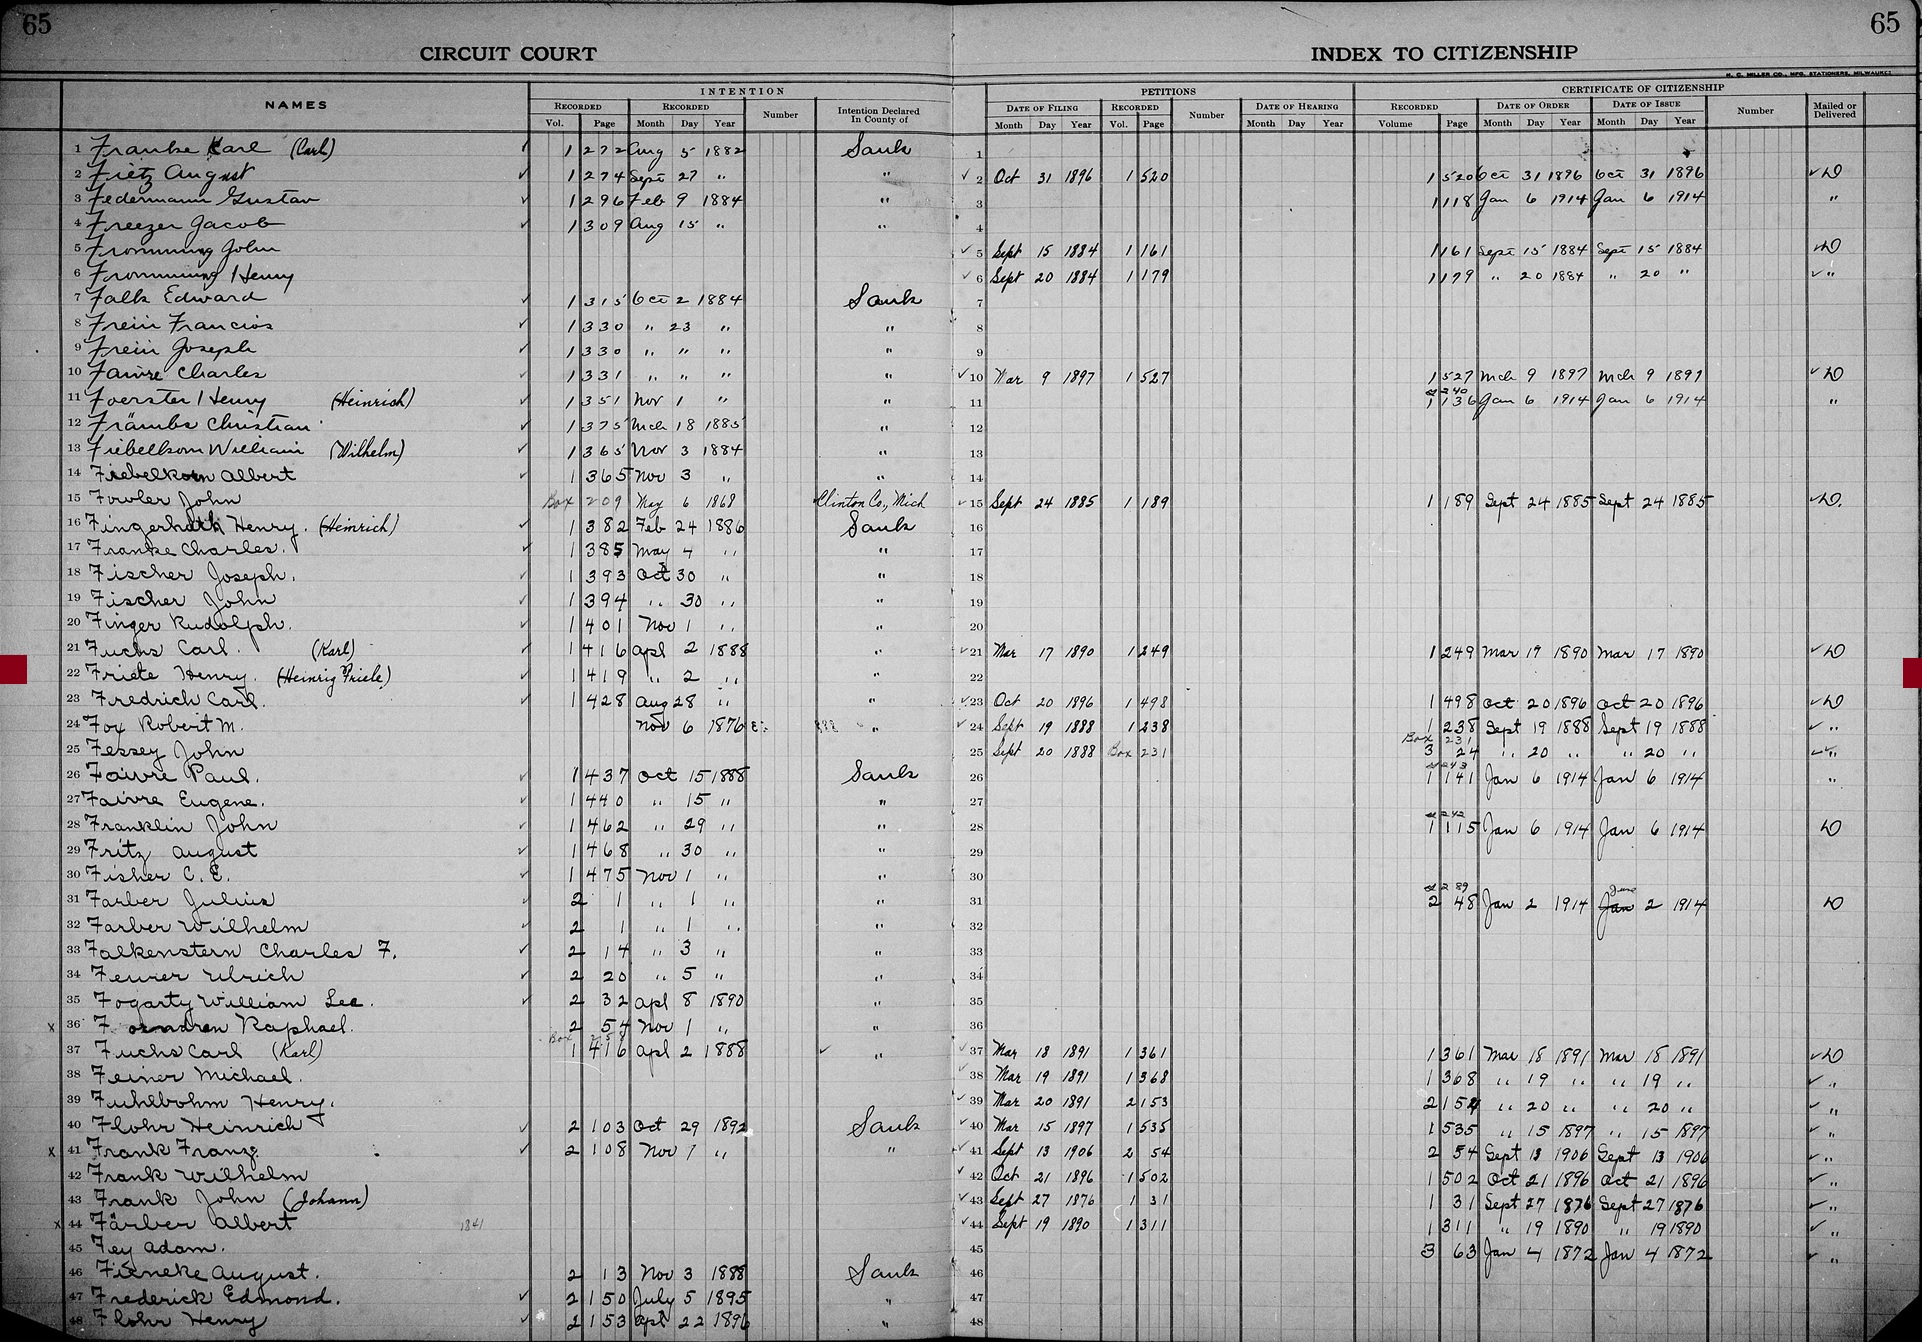 65 65
CIRCUIT COURT INDEX TO CITIZENSHIP
H. C. MILLER CO., MFG. STATIONERS, MILWAUKEE
NAMES INTENTION PETITIONS CERTIFICATE OF CITIZENSHIP
RECORDED RECORDED Number Intention Declared In County of DATE OF FILING RECORDED Number DATE OF HEARING RECORDED DATE OF ORDER DATE OF ISSUE Number Mailed or Delivered
Vol. Page Month Day Year Month Day Year Vol. Page Month Day Year Volume Page Month Day Year Month Day Year
1 Franke Karl (Carl) ✓ 1 272 Aug 5 1882 Sauk 1
2 Fietz August ✓ 1 274 Sept 27 " " ✓ 2 Oct 31 1896 1 520 1 520 Oct 31 1896 Oct 31 1896 ✓ D
3 Federmann Gustav ✓ 1 296 Feb 9 1884 " 3 1 118 Jan 6 1914 Jan 6 1914 "
4 Freezer Jacob ✓ 1 309 Aug 15 " " 4
5 Fromming John ✓ 5 Sept 15 1884 1 161 1 161 Sept 15 1884 Sept 15 1884 ✓ D
6 Fromming Henry ✓ 6 Sept 20 1884 1 179 1 179 " 20 1884 " 20 " ✓ "
7 Falk Edward ✓ 1 315 Oct 2 1884 Sauk 7
8 Frein Francios ✓ 1 330 " 23 " " 8
9 Frein Joseph ✓ 1 330 " " " " 9
10 Faivre Charles ✓ 1 331 " " " " ✓ 10 Mar 9 1897 1 527 1 527 Mch 9 1897 Mch 9 1897 ✓ D
11 Foerster Henry (Heinrich) ✓ 1 351 Nov 1 " " 11 240 1 136 Jan 6 1914 Jan 6 1914 "
12 Främbs Christian ✓ 1 375 Mch 18 1885 " 12
13 Fiebelkorn William (Wilhelm) ✓ 1 365 Nov 3 1884 " 13
14 Fiebelkorn Albert ✓ 1 365 Nov 3 " " 14
15 Fowler John Box 209 May 6 1868 Clinton Co., Mich ✓ 15 Sept 24 1885 1 189 1 189 Sept 24 1885 Sept 24 1885 ✓ D.
16 Fingerhuth Henry. (Heinrich) ✓ 1 382 Feb 24 1886 Sauk 16
17 Franke Charles. ✓ 1 385 May 4 " " 17
18 Fischer Joseph. ✓ 1 393 Oct 30 " " 18
19 Fischer John ✓ 1 394 " 30 " " 19
20 Finger Rudolph. ✓ 1 401 Nov 1 " " 20
21 Fuchs Carl. (Karl) ✓ 1 416 Apl 2 1888 " ✓ 21 Mar 17 1890 1 249 1 249 Mar 17 1890 Mar 17 1890 ✓ D
22 Friele Henry. (Heinrig Friele) ✓ 1 419 " 2 " " 22
23 Fredrich Carl. ✓ 1 428 Aug 28 " " ✓ 23 Oct 20 1896 1 498 1 498 Oct 20 1896 Oct 20 1896 ✓ D
24 Fox Robert M. Nov 6 1876 " ✓ 24 Sept 19 1888 1 238 1 238 Sept 19 1888 Sept 19 1888 ✓ "
25 Fessey John 25 Sept 20 1888 Box 231 Box 231 3 24 " 20 " " 20 " ✓ "
26 Faivre Paul. ✓ 1 437 Oct 15 1888 Sauk 26 243 1 141 Jan 6 1914 Jan 6 1914 "
27 Faivre Eugene. ✓ 1 440 " 15 " " 27
28 Franklin John ✓ 1 462 " 29 " " 28 242 1 115 Jan 6 1914 Jan 6 1914 D
29 Fritz August ✓ 1 468 " 30 " " 29
30 Fisher C. E. ✓ 1 475 Nov 1 " " 30
31 Farber Julius ✓ 2 1 " 1 " " 31 289 2 48 Jan 2 1914 Jan June 2 1914 D
32 Farber Wilhelm ✓ 2 1 " 1 " " 32
33 Falkenstern Charles F. ✓ 2 14 " 3 " " 33
34 Feurer Ulrich ✓ 2 20 " 5 " " 34
35 Fogarty William Lee. ✓ 2 32 Apl 8 1890 " 35
x 36 Raphael. 2 54 Nov 1 " " 36
37 Fuchs Carl (Karl) Box 1 416 Apl 2 1888 ✓ " ✓ 37 Mar 18 1891 1 361 1 361 Mar 18 1891 Mar 18 1891 ✓ D
38 Feiner Michael. ✓ 38 Mar 19 1891 1 368 1 368 " 19 " " 19 " ✓ "
39 Fuhlbohm Henry. ✓ 39 Mar 20 1891 2 153 2 154 " 20 " " 20 " ✓ "
40 Flohr Heinrich ✓ 2 103 Oct 29 1892 Sauk ✓ 40 Mar 15 1897 1 535 1 535 " 15 1897 " 15 1897 ✓ "
x 41 Frank Franz ✓ 2 108 Nov 7 " " ✓ 41 Sept 13 1906 2 54 2 54 Sept 13 1906 Sept 13 1906 ✓ "
42 Frank Wilhelm ✓ 42 Oct 21 1896 1 502 1 502 Oct 21 1896 Oct 21 1896 ✓ "
43 Frank John (Johann) ✓ 43 Sept 27 1876 1 31 1 31 Sept 27 1876 Sept 27 1876 ✓ "
x 44 Färber Albert 1841 ✓ 44 Sept 19 1890 1 311 1 311 " 19 1890 " 19 1890 ✓ "
45 Fey Adam. 45 3 63 Jan 4 1872 Jan 4 1872 ✓ "
46 Finneke August. 2 13 Nov 3 1888 Sauk 46
47 Frederick Edmond. ✓ 2 150 July 5 1895 " 47
48 Flohr Henry ✓ 2 153 Apl 22 1896 " 48